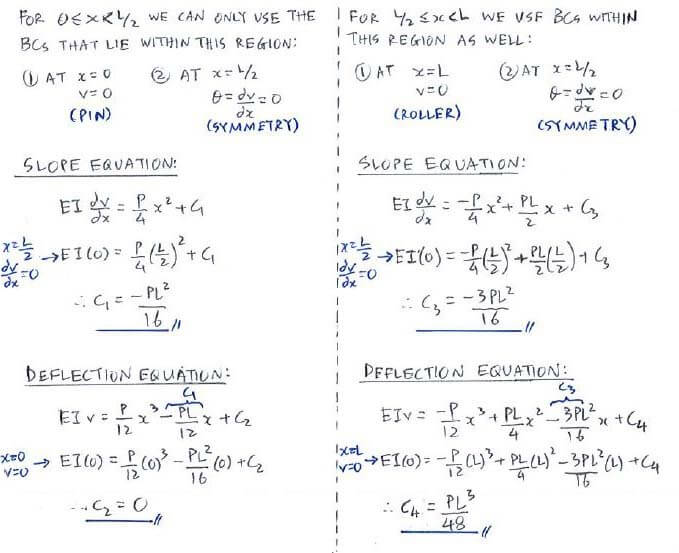 FOR 0≤x<L/2 WE CAN ONLY USE THE
BCs THAT LIE WITHIN THIS REGION:
① AT x=0 ② AT x=L/2
v=0 θ=dv/dx=0
(PIN) (SYMMETRY)
SLOPE EQUATION:
EI dv/dx = P/4 x² + C₁
x=L/2 dv/dx=0 → EI(0) = P/4 (L/2)² + C₁
∴ C₁ = -PL²/16 //
DEFLECTION EQUATION:
C₁
EI v = P/12 x³ - PL/12 x + C₂
x=0 v=0 → EI(0) = P/12 (0)³ - PL²/16 (0) + C₂
∴ C₂ = 0 //
FOR L/2 ≤x<L WE USE BCs WITHIN
THIS REGION AS WELL:
① AT x=L ② AT x=L/2
v=0 θ=dv/dx=0
(ROLLER) (SYMMETRY)
SLOPE EQUATION:
EI dv/dx = -P/4 x² + PL/2 x + C₃
x=L/2 dv/dx=0 → EI(0) = -P/4 (L/2)² + PL/2 (L/2) + C₃
∴ C₃ = -3PL²/16 //
DEFLECTION EQUATION:
C₃
EIv = -P/12 x³ + PL/4 x² - 3PL²/16 x + C₄
x=L v=0 → EI(0) = -P/12 (L)³ + PL/4 (L)² - 3PL²/16 (L) + C₄
∴ C₄ = PL³/48 //